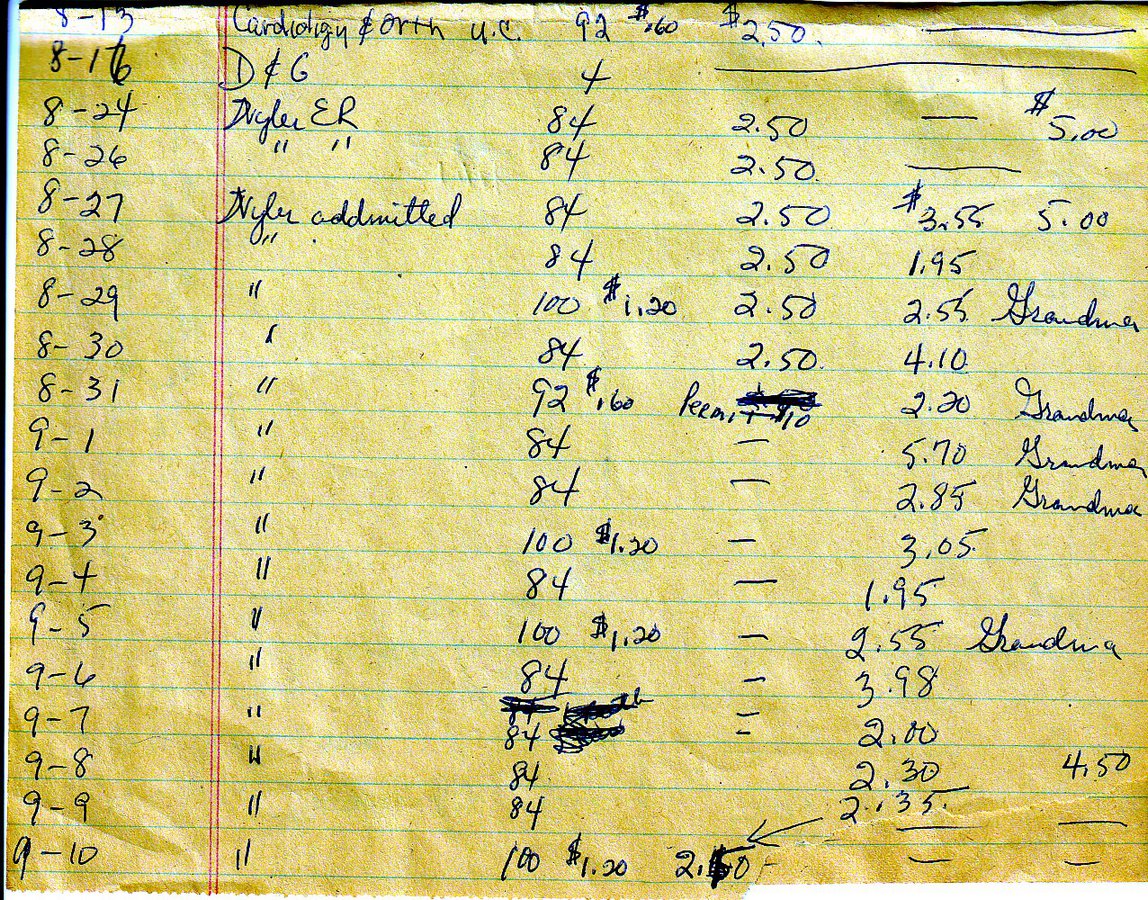 8-13 Cardiology & Orth U.C. 92 $.60 $2.50.
8-16 D & G 4
8-24 Nyler ER 84 2.50 — $5.00
8-26 " " 84 2.50. —
8-27 Nyler addmitted 84 2.50 $3.55 5.00
8-28 " 84 2.50 1.95
8-29 " 100 $1.20 2.50 2.55 Grandma
8-30 " 84 2.50. 4.10
8-31 " 92 $.60 $10 2.20 Grandma
9-1 " 84 — 5.70 Grandma
9-2 " 84 — 2.85 Grandma
9-3 " 100 $1.20 — 3.05
9-4 " 84 — 1.95
9-5 " 100 $1.20 — 2.55 Grandma
9-6 " 84 — 3.98
9-7 " 84 — 2.00
9-8 " 84 2.30 4.50
9-9 " 84 2.35. — —
9-10 " 100 $1.20 2.50 — —